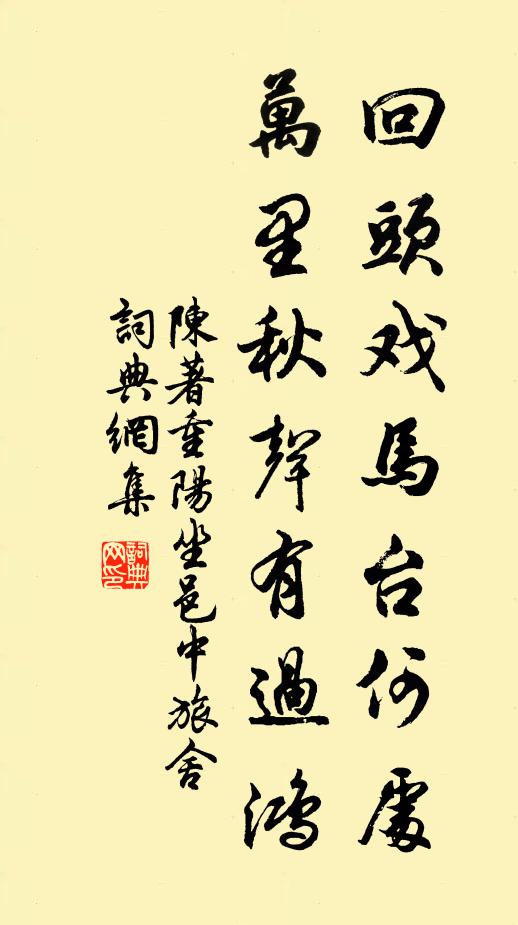 回頭戏馬台何處
萬里秋聲有過鴻
陳著重陽坐邑中旅舍
詞典網集
詞典
网印